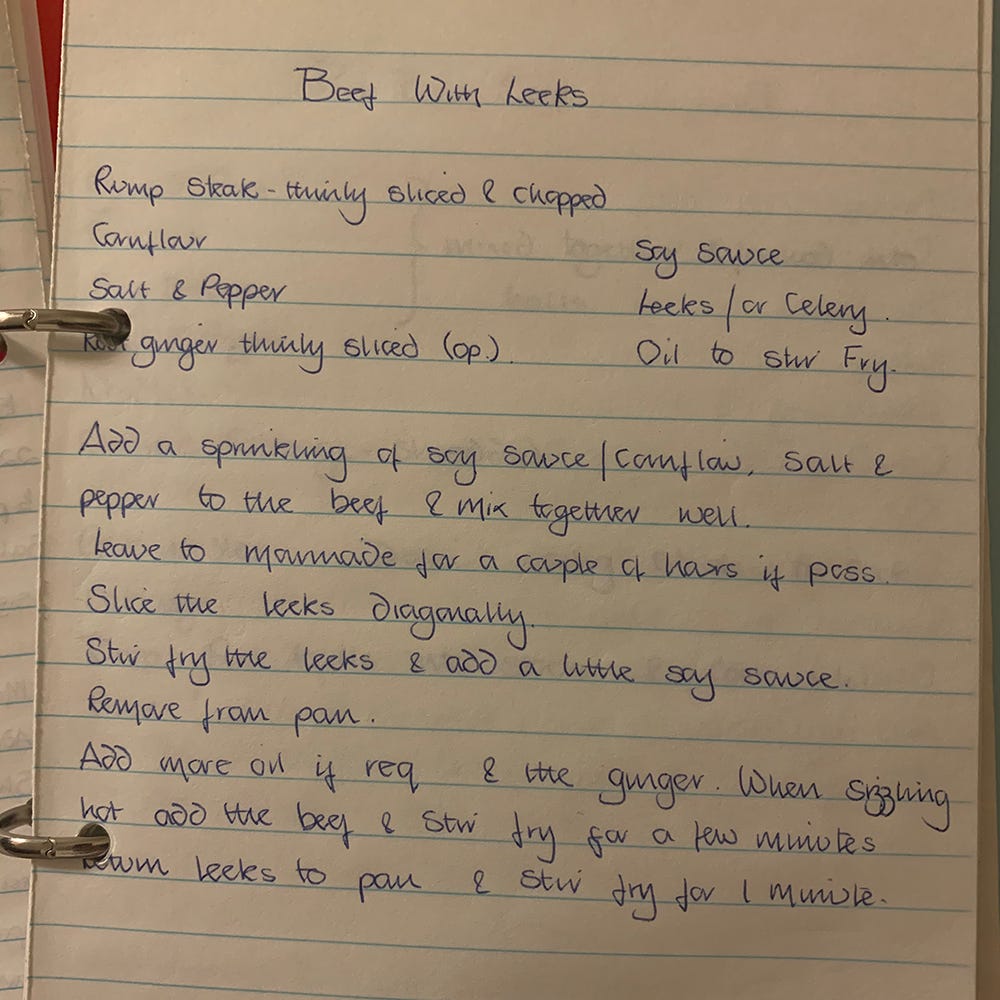 Beef With Leeks
Rump Steak - thinly sliced & chopped
Cornflour
Soy sauce
Salt & Pepper
Leeks / or Celery.
Root ginger thinly sliced (op.).
Oil to stir Fry.
Add a sprinkling of soy sauce / cornflour, salt &
pepper to the beef & mix together well.
Leave to marinade for a couple of hours if poss.
Slice the leeks diagonally.
Stir fry the leeks & add a little soy sauce.
Remove from pan.
Add more oil if req & the ginger. When sizzling
hot add the beef & stir fry for a few minutes
Return leeks to pan & stir fry for 1 minute.